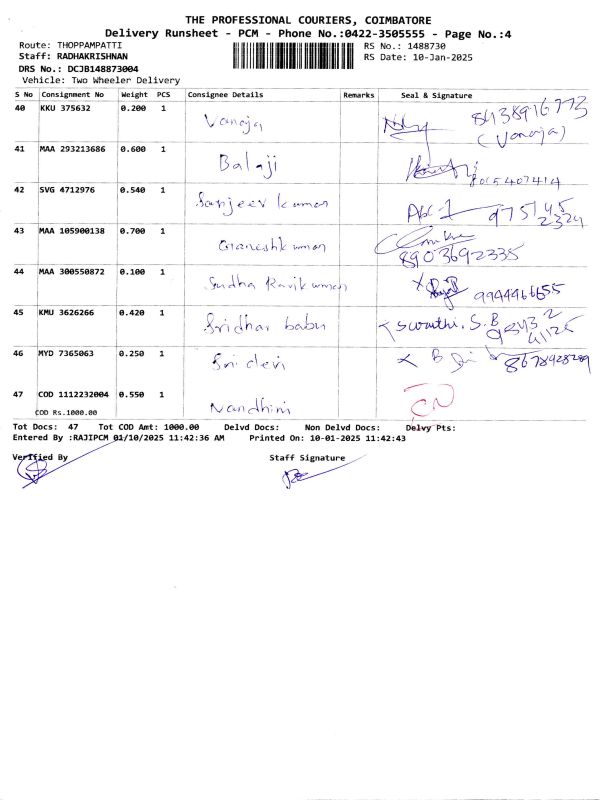 THE PROFESSIONAL COURIERS, COIMBATORE
Delivery Runsheet - PCM - Phone No.:0422-3505555 - Page No.:4
Route: THOPPAMPATTI
RS No.: 1488730
Staff: RADHAKRISHNAN
RS Date: 10-Jan-2025
DRS No.: DCJB148873004
Vehicle: Two Wheeler Delivery
S No Consignment No Weight PCS Consignee Details Remarks Seal & Signature
40 KKU 375632 0.200 1 Vanaja 8438916773
(Vanaja)
41 MAA 293213686 0.600 1 Balaji 8015407414
42 SVG 4712976 0.540 1 Sanjeev kumar
43 MAA 105900138 0.700 1 Ganeshkumar
8903692335
44 MAA 300550872 0.100 1 Sudha Ravikumar 9944466655
45 KMU 3626266 0.420 1 Sridhar babu Swathi. S.B
46 MYD 7365063 0.250 1 Sri devi
47 COD 1112232004 0.550 1 Nandhini CN
COD Rs.1000.00
Tot Docs: 47 Tot COD Amt: 1000.00 Delvd Docs: Non Delvd Docs: Delvy Pts:
Entered By :RAJIPCM 01/10/2025 11:42:36 AM Printed On: 10-01-2025 11:42:43
Verified By Staff Signature